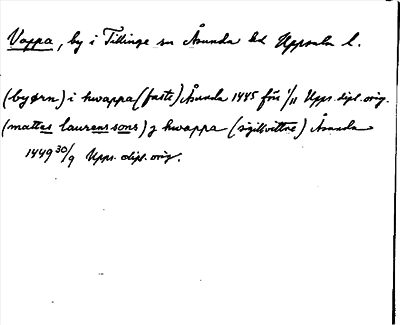 Vappa, by i Tillinge sn Åsunda hd Uppsala l.
(byørn) i hwappa (faste) Åsunda 1445 före 1/11 Upps. dipl. orig.
(mattes laurenssons) j hwappa (sigillvittne) Åsunda
1449 30/9 Upps. dipl. orig.